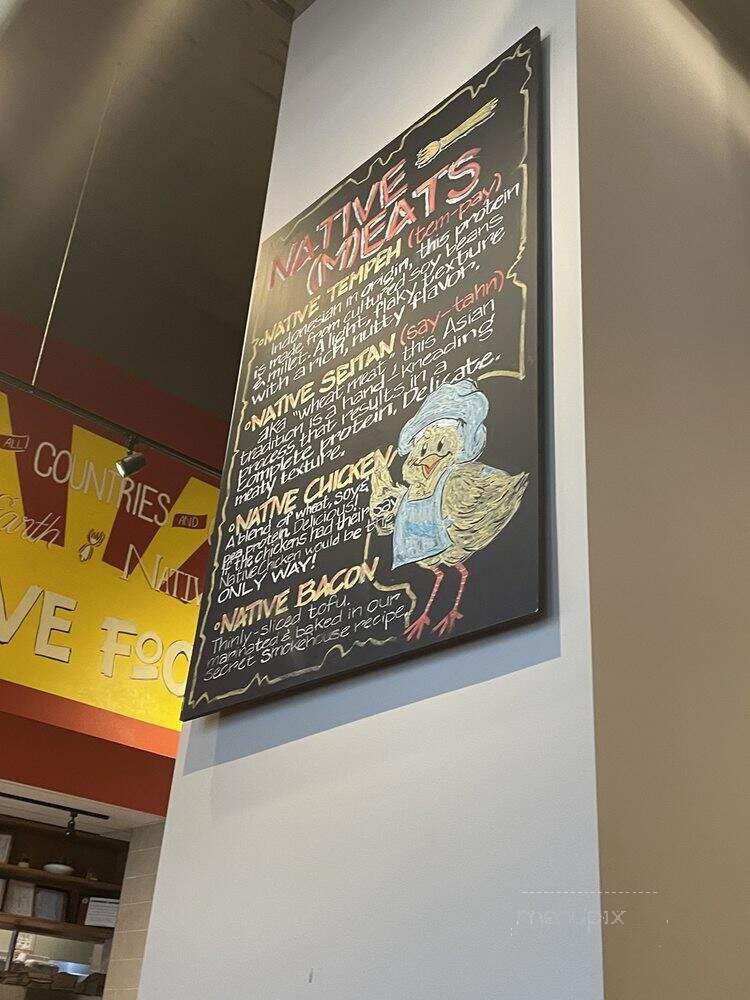 NATIVE
(M)EATS
°NATIVE TEMPEH (tem-pay)
Indonesian in origin, this protein
is made from cultured soy beans
& millet. A light, flaky texture
with a rich, nutty flavor.
°NATIVE SEITAN (say-tahn)
aka "wheat meat", this Asian
tradition is a hand-kneading
process that results in a
complete protein. Delicate,
meaty texture.
°NATIVE CHICKEN
A blend of wheat, soy &
pea protein. Delicious!
If the chickens had their say
Native Chicken would be the
ONLY WAY!
°NATIVE BACON
Thinly-sliced tofu,
marinated & baked in our
secret smokehouse recipe.
ALL
COUNTRIES AND
Earth
NATIV
VE FOO
menupix